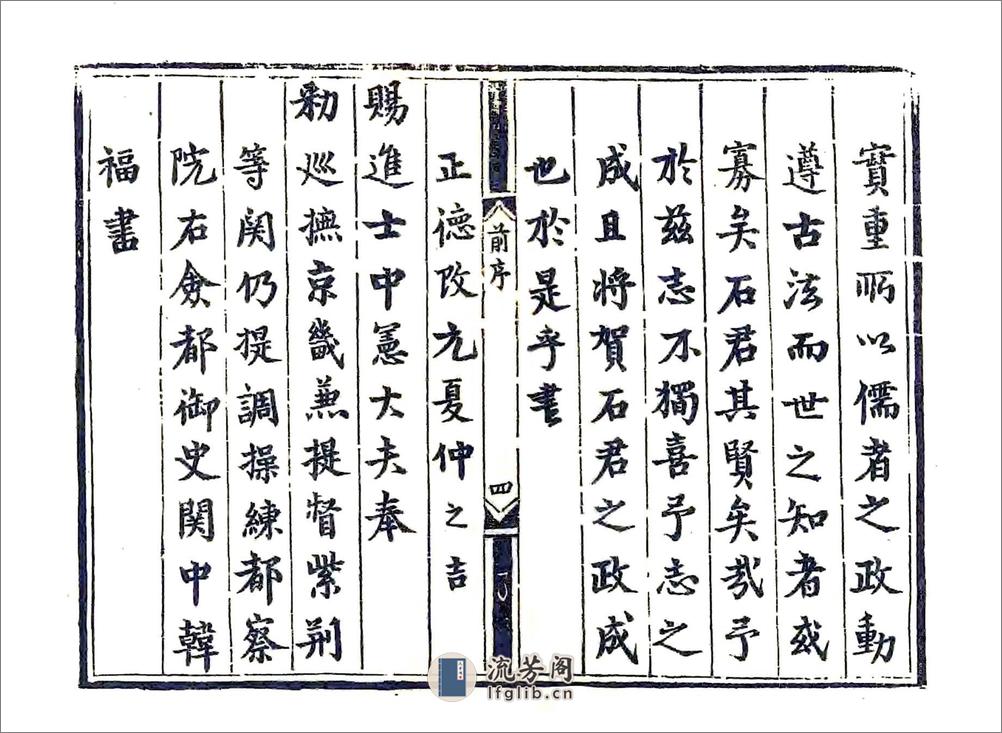 寳重所以儒者之政動
遵古法而世之知者或
寡矣石君其賢矣哉予
於兹志不獨喜予志之
成且將賀石君之政成
也於是乎書
前序
四
正德改元夏仲之吉
賜進士中憲大夫奉
勑巡撫京畿兼提督紫荆
等関仍提調操練都察
院右僉都御史関中韓
福書
流芳阁
lfglib.cn